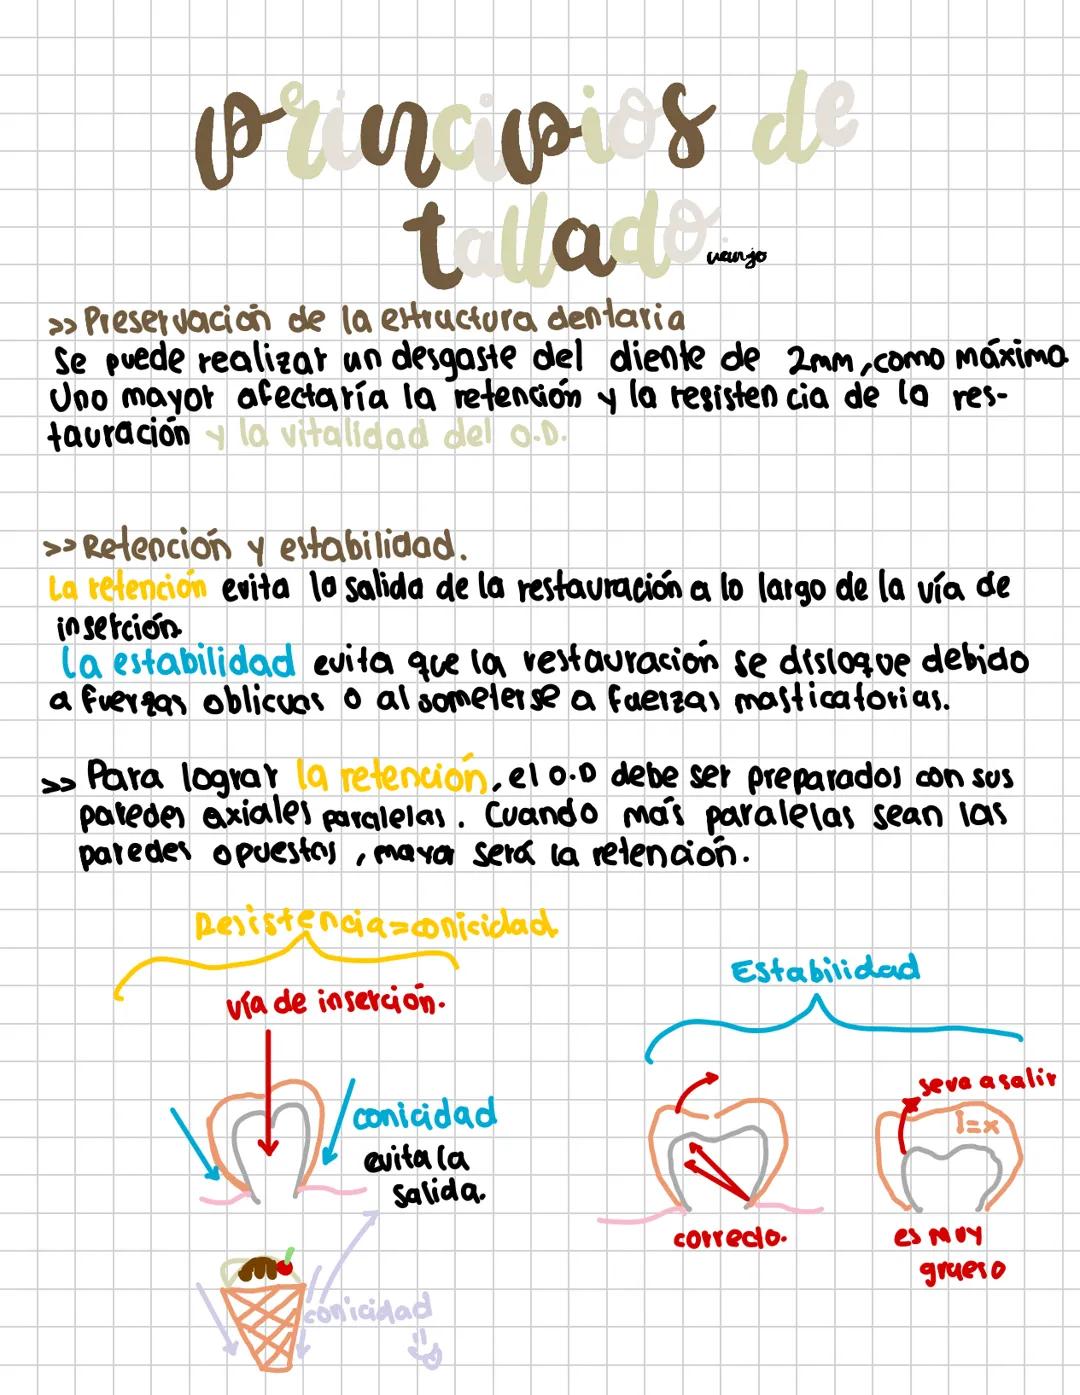 principios de
tallado
naujo
>> Preservación de la estructura dentaria
Se puede realizar un desgaste del diente de 2mm, como máximo
Uno mayor afectaría la retención y la resistencia de la res-
tauración y la vitalidad del O.D.
>> Retención y estabilidad.
La retención evita la salida de la restauración a lo largo de la vía de
inserción
La estabilidad evita que la restauración se disloque debido
a fuerzas oblicuas o al someterse a fuerzas masticatorias.
>> Para lograr la retención, el O.D debe ser preparados con sus
paredes axiales paralelas. Cuando más paralelas sean las
paredes opuestas, mayor será la retención.
Resistencia=conicidad
Estabilidad
vía de inserción.
se va a salir
conicidad
i=x
evita la
salida.
correcto.
es muy
grueso
conicidad